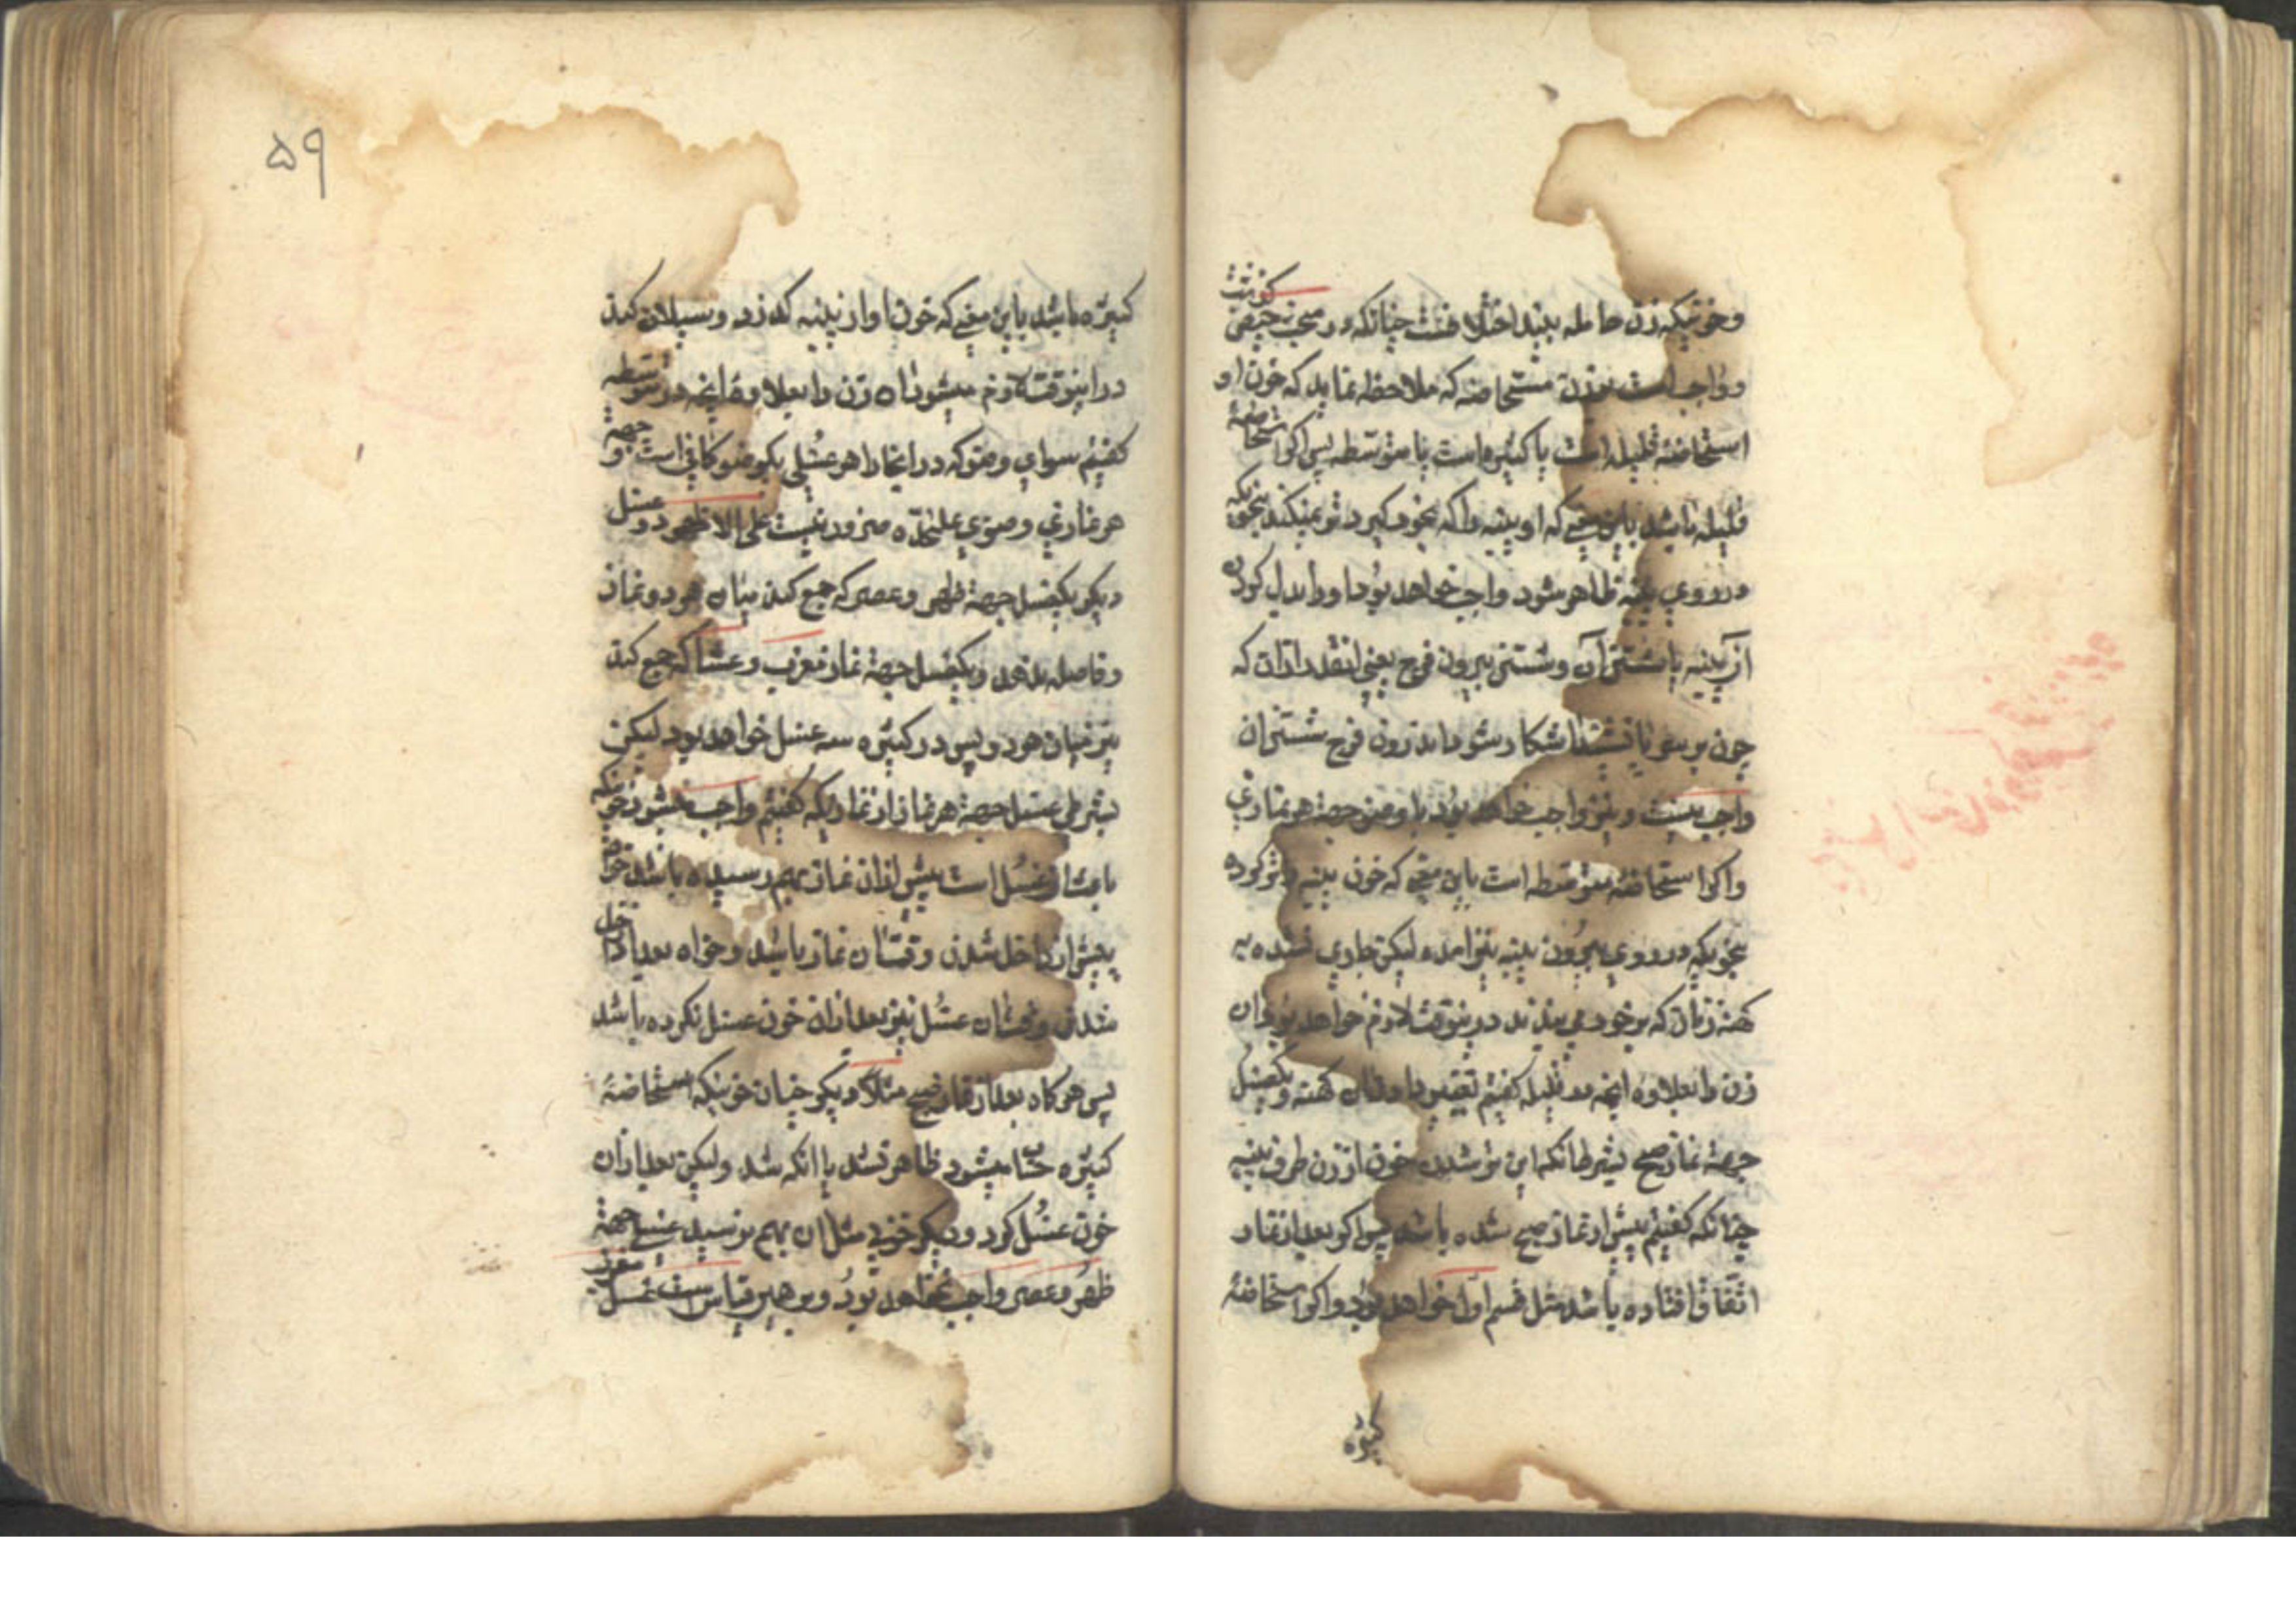 وخونیکه زن حامله بیند اختلافست چنانکه در مبحث حیض گذشت
و واجب است بر زن مستحاضه که ملاحظه نماید که خون او
استحاضهٔ قلیله است یا کثیره است یا متوسطه پس اگر استحاضهٔ
قلیله باشد باین معنی که او پنبه را که بخود گیرد تر نمیکند بنحویکه
در روی پنبه ظاهر شود واجب خواهد بود او را بدل کردن
آن پنبه یا شستن آن و شستن بیرون فرج یعنی انقدر ازان که
چون بر سر پا نشیند اشکار شود اما درون فرج شستن ان
واجب نیست و نیز واجب خواهد بود با و وضو جهة هر نمازی
واگر استحاضهٔ متوسطه است باین معنی که خون پنبه را تر کرده
بنحویکه در روی بیرون پنبه نیز امده لیکن جاری نشده به
کهنه زنان که بر خود می بندند درینوقت لازم خواهد بود ان
زن را بعلاوه انچه در قلیله کفتیم تغییر دادن ان کهنه و یکغسل
جهة نماز صبح بشرطانکه این تر شدن خون از زن طرف پنبه
چنانکه کفتیم پیش از نماز صبح شده باشد پس اکر بعد از نماز
اتفاق افتاده باشد مثل قسم اول خواهد بود واکر استحاضهٔ
کثیره
۵۹
کثیره باشد باین معنی که خون او از پنبه کذرد و سیلان کند
در اینوقت لازم میشود ان زن را بعلاوهٔ انچه در متوسطه
کفتیم سوای وضو که در انجا را هر غسلی یکوضو کافی است و جهة
هر نمازی وضوی علیحدّه ضرور نیست علی الاظهر دو غسل
دیکر یکغسل جهة ظهر و عصر که جمع کند میان هر دو نماز
و فاصله ندهد و یکغسل جهة نماز مغرب و عشا که جمع کند
نیز میان هر دو پس در کثیره سه غسل خواهد بود لیکن
بشرطی غسل جهة هر نماز از نمازیکه کفتیم واجب میشود خونیکه
باعث ان غسل است پیش ازان نماز بهم رسیده باشد خواه
پیش از داخل شدن وقت ان نماز باشد و خواه بعد از داخل
شدن وقت ان غسل نیز بعد ازان خون غسل نکرده باشد
پس هرکاه بعد از نماز صبح مثلا دیکر چنان خونیکه استحاضهٔ
کثیره حساب میشود ظاهر نشد یا انکه شد ولیکن بعد ازان
خون غسل کرد و دیکر خونی مثل ان بهم نرسید غسلی جهة
ظهر و عصر واجب نخواهد بود و برهمین قیاس ست غسل مغرب